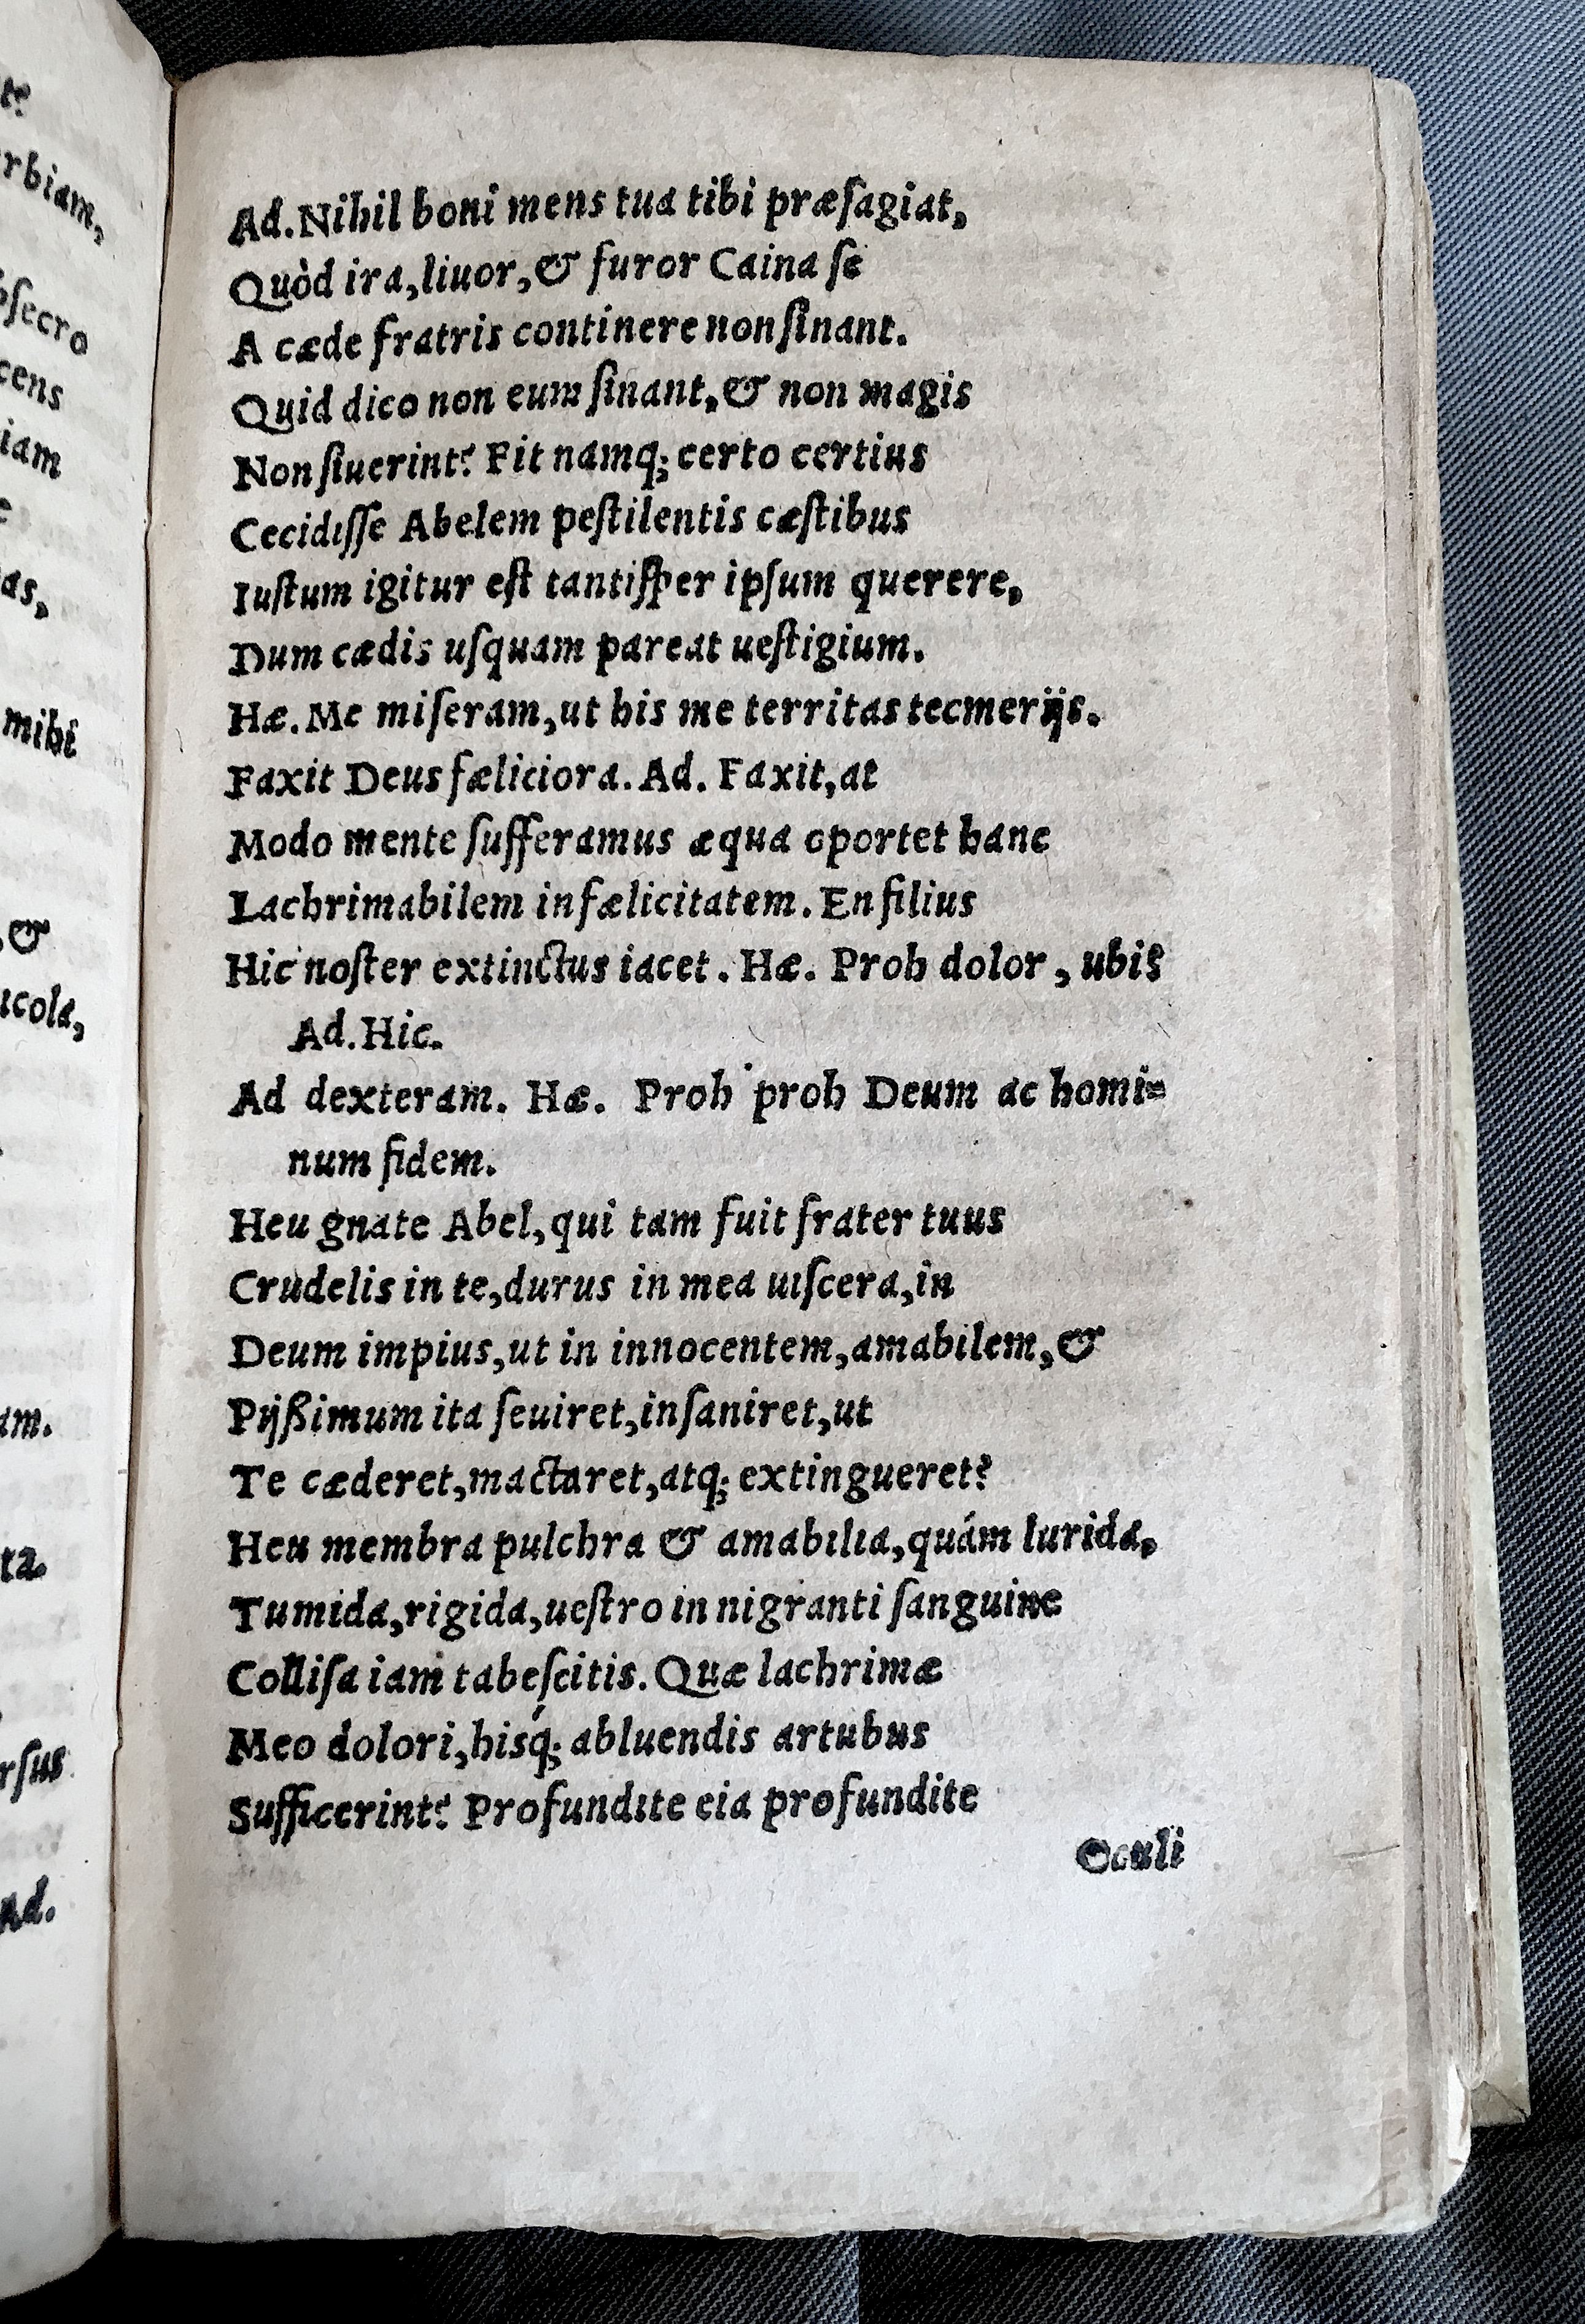 Ad. Nihil boni mens tua tibi præſagiat,
Quòd ira, liuor, & furor Caina ſe
A cæde fratris continere non ſinant.
Quid dico non eum ſinant, & non magis
Non ſiuerint? Fit namq; certo certius
Cecidiſſe Abelem peſtilentis cæſtibus
Iuſtum igitur eſt tantiſper ipſum querere,
Dum cædis uſquam pareat ueſtigium.
Hæ. Me miſeram, ut his me territas tecmerijs.
Faxit Deus fæliciora. Ad. Faxit, at
Modo mente ſufferamus æqua oportet hanc
Lachrimabilem infælicitatem. En filius
Hic noſter extinctus iacet. Hæ. Proh dolor, ubi?
Ad. Hic.
Ad dexteram. Hæ. Proh proh Deum ac homi=
num fidem.
Heu gnate Abel, qui tam fuit frater tuus
Crudelis in te, durus in mea uiſcera, in
Deum impius, ut in innocentem, amabilem, &
Pijßimum ita ſeuiret, inſaniret, ut
Te cæderet, mactaret, atq; extingueret?
Heu membra pulchra & amabilia, quám lurida,
Tumida, rigida, ueſtro in nigranti ſanguine
Colliſa iam tabeſcitis. Quæ lachrimæ
Meo dolori, hisq́; abluendis artubus
Sufficerint? Profundite eia profundite
Oculi
te
rbiam,
ſecro
cens
iam
e
as,
mihi
, &
icola,
am.
ta.
rſus
Ad.